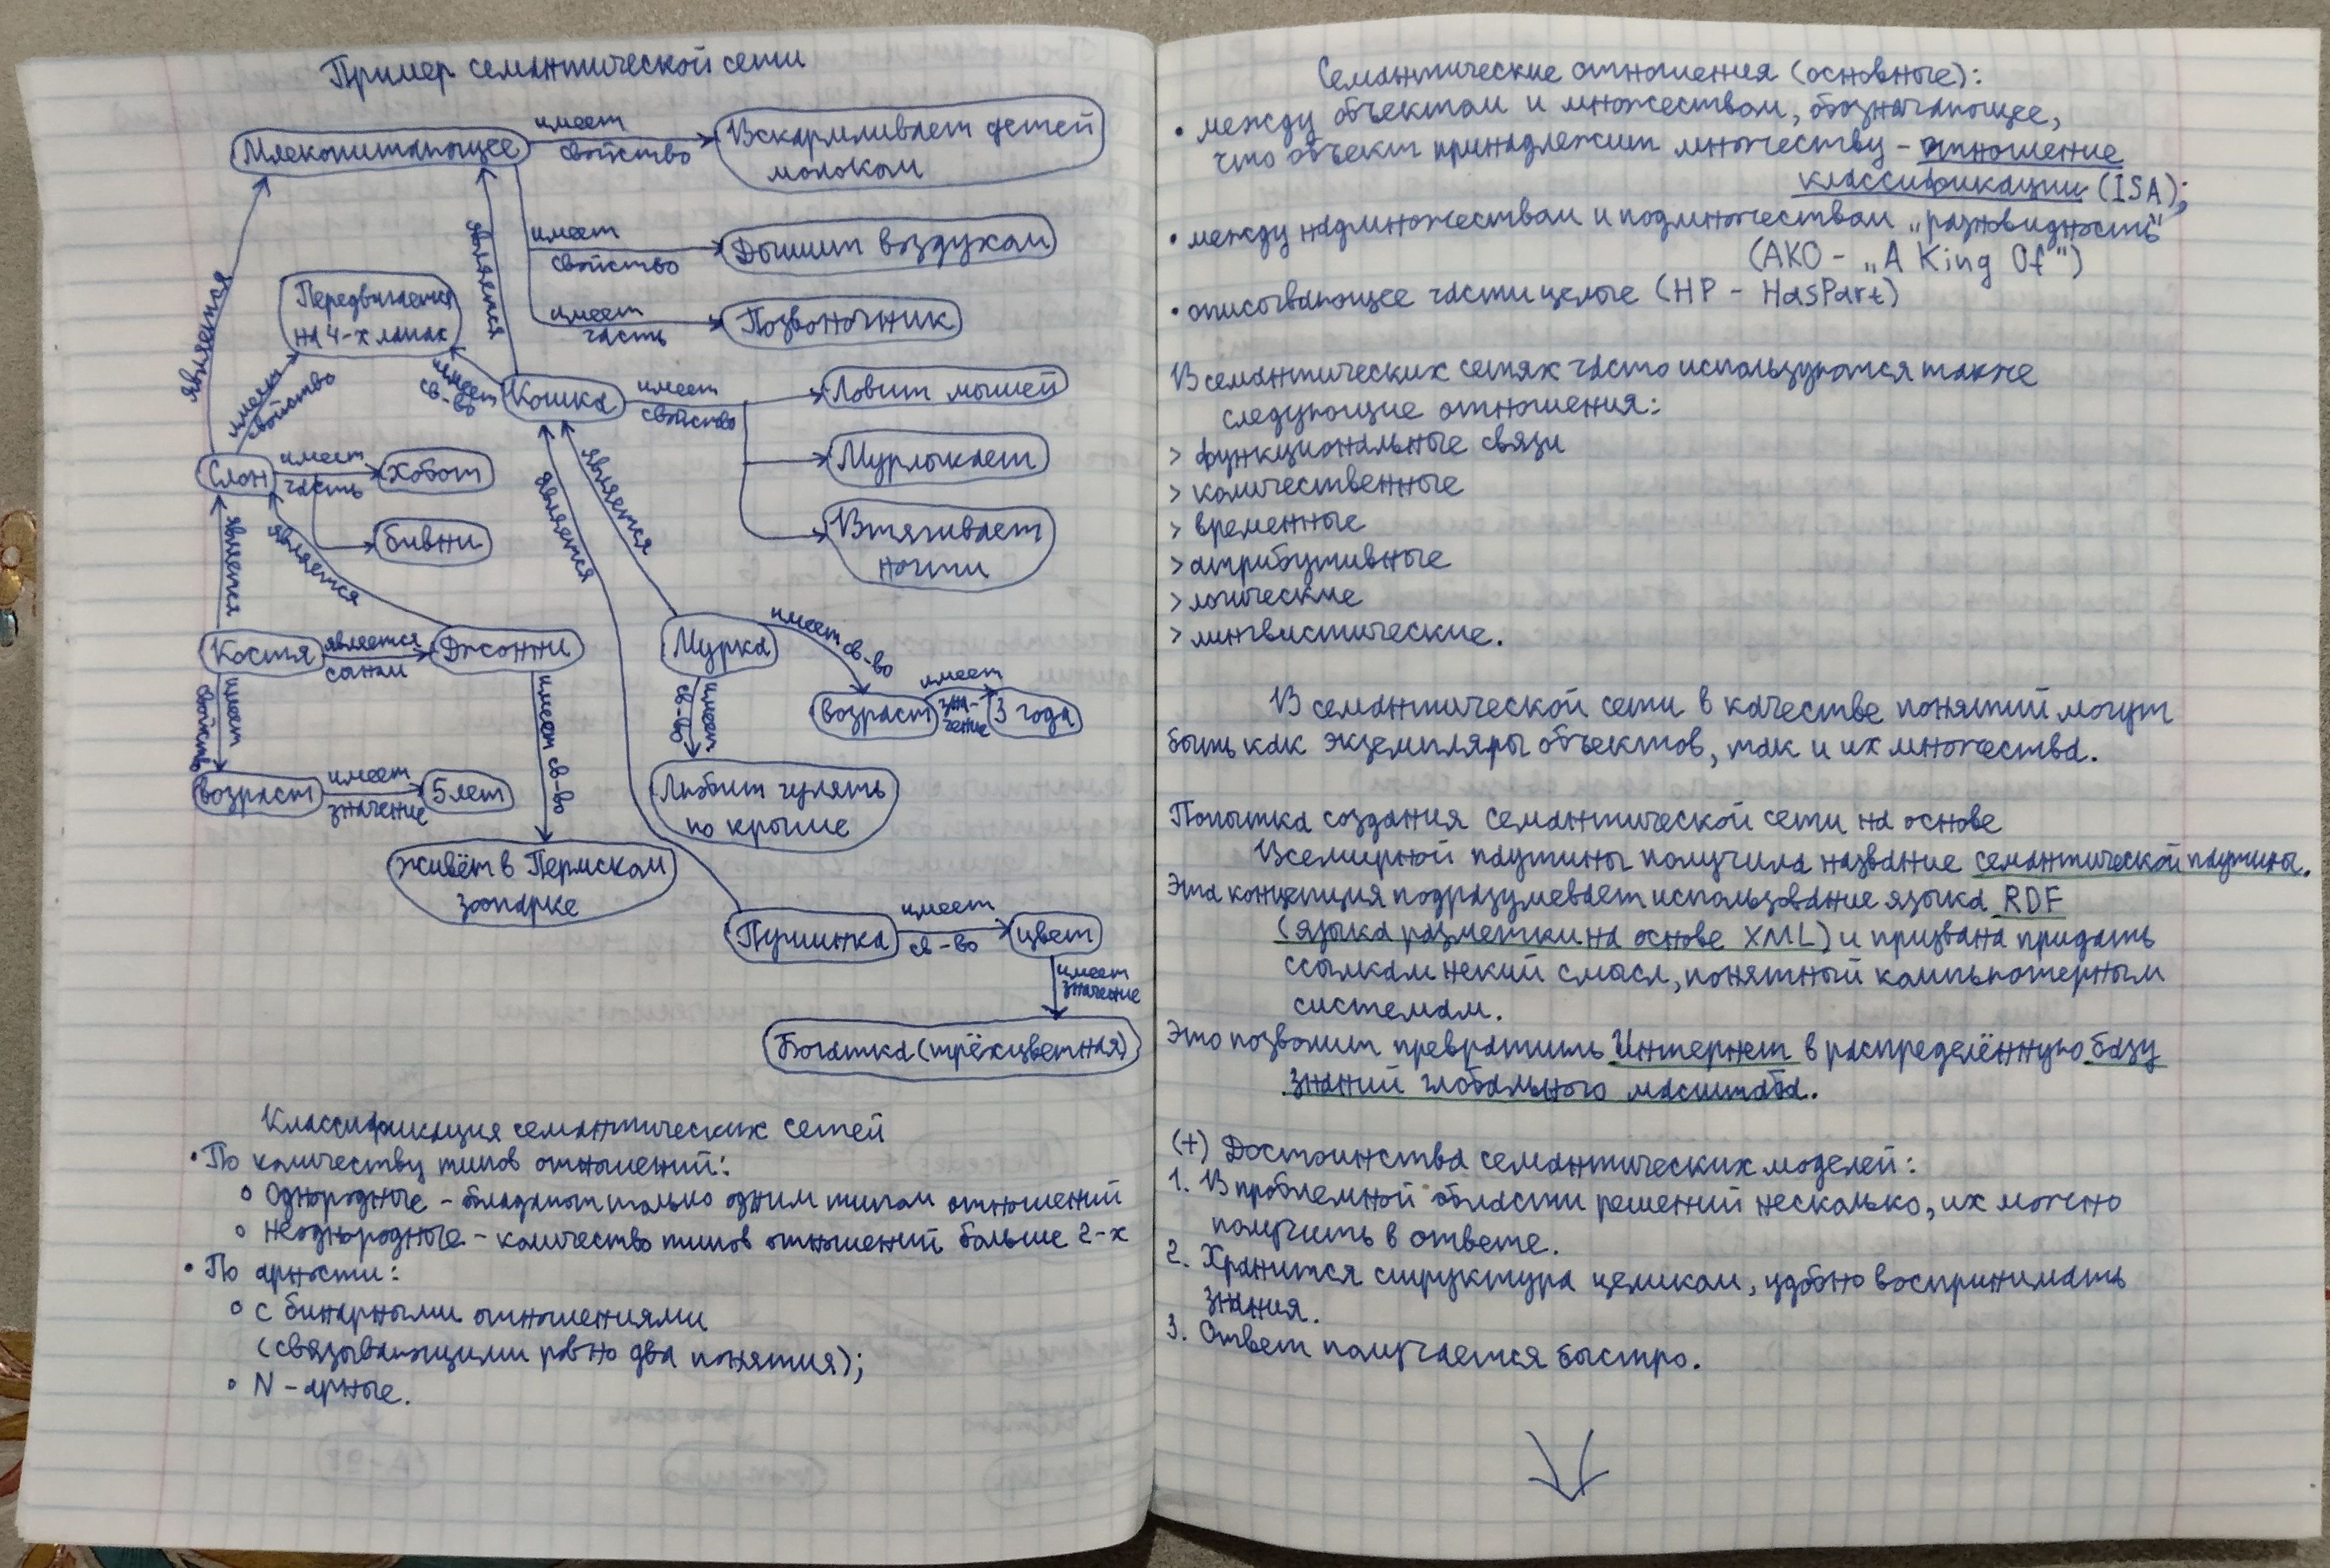 Пример семантической сети
Млекопитающее
имеет
свойство
Вскармливает детей
молоком
имеет
свойство
Дышит воздухом
имеет
часть
Позвоночник
является
является
Передвигается
на 4-х лапах
имеет
свойство
имеет
св-во
Кошка
имеет
свойство
Ловит мышей
Мурлыкает
Втягивает
ногти
Слон
имеет
часть
Хобот
бивни
является
является
является
является
Костя
является
сыном
Джонни
Мурка
имеет св-во
возраст
имеет
зна-
чение
3 года
имеет
свойство
имеет св-во
имеет
св-во
возраст
имеет
значение
5 лет
Любит гулять
по крыше
живёт в Пермском
зоопарке
Пушинка
имеет
св-во
цвет
имеет
значение
Богатка (трёхцветная)
Классификация семантических сетей
• По количеству типов отношений:
o Однородные - обладают только одним типом отношений
o Неоднородные - количество типов отношений больше 2-х
• По арности:
o с бинарными отношениями
(связывающими ровно два понятия);
o N-арные.
Семантические отношения (основные):
• между объектом и множеством, обозначающее,
что объект принадлежит множеству - отношение
классификации (ISA);
• между надмножеством и подмножеством „разновидность"
(AKO - „A King Of")
• описывающее части целые (HP - HasPart)
В семантических сетях часто используются также
следующие отношения:
> функциональные связи
> количественные
> временные
> атрибутивные
> логические
> лингвистические.
В семантической сети в качестве понятий могут
быть как экземпляры объектов, так и их множества.
Попытка создания семантической сети на основе
Всемирной паутины получила название семантической паутины.
Эта концепция подразумевает использование языка RDF
(языка разметки на основе XML) и призвана придать
ссылкам некий смысл, понятный компьютерным
системам.
Это позволит превратить Интернет в распределённую базу
знаний глобального масштаба.
(+) Достоинства семантических моделей:
1. В проблемной области решений несколько, их можно
получить в ответе.
2. Хранится структура целиком, удобно воспринимать
знания.
3. Ответ получается быстро.